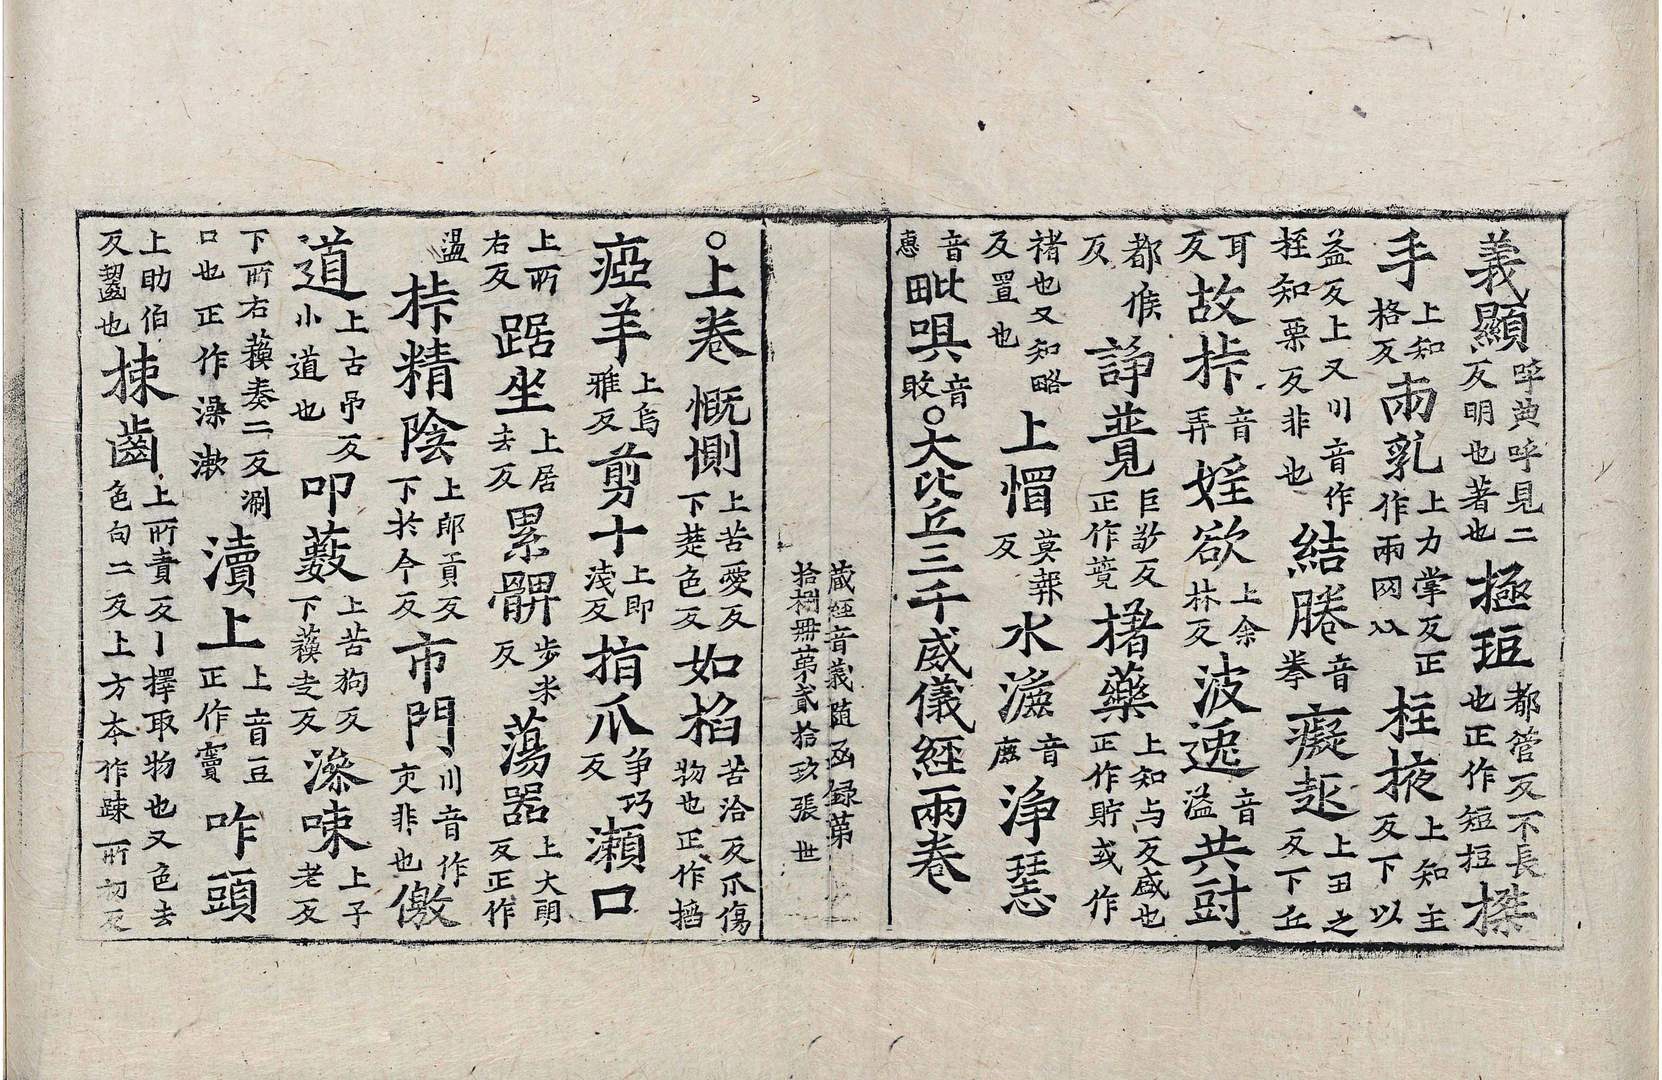 義顯呼典呼見二反明也著也極𭹀都管反不長也正作短拒㨖
手上知格反兩乳上力掌反正作兩网从柱掖上知主反下以
益反上又川音作桎知栗反非也結㢧音拳癡赸上丑之反下丘
耳反故㭚音弄婬欲上余林反波逸音溢共尌
都候反諍覺巨敬反正作競楮藥上知与反盛也正作貯或作
褚也又知略反置也上㡌莫報反水漉音鹿淨𤨏
音惠毗㖶音敗○大比丘三千威儀經兩卷
藏經音義隨函録第
拾捌冊第貳拾玖張 世
○上卷慨惻上苦愛反下楚色反如掐苦洽反爪傷物也正作搯
瘂羊上烏雅反剪十上即淺反㨃爪爭巧反瀨口
上所右反踞坐上居去反累髀步米反蕩器上大朗反正作
盪㭚精陰上郎貢反下於今反市門川音作夾非也儌
道上古吊反小道也叩藪上苦狗反下蘓走反澡㖩上子老反
下所右蘓奏二反涮口也正作澡漱瀆上上音豆正作竇咋頭
上助伯反齧也㨂齒上所責反丨擇取物也又色去色句二反上方本作疎所初反